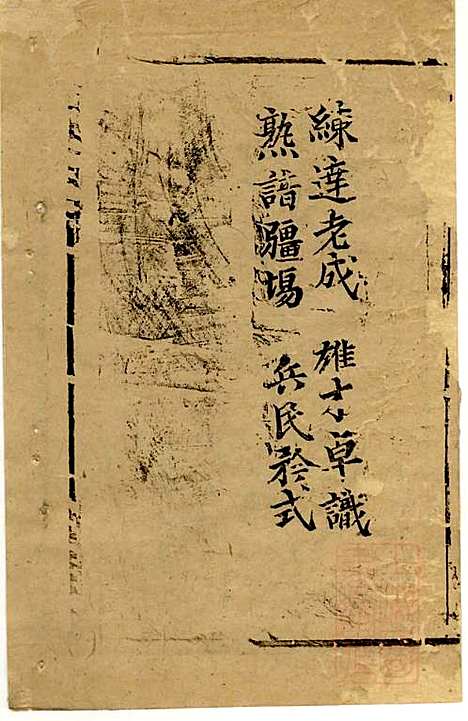 練達老成 雄才卓識
熟諳疆場 兵民矜式